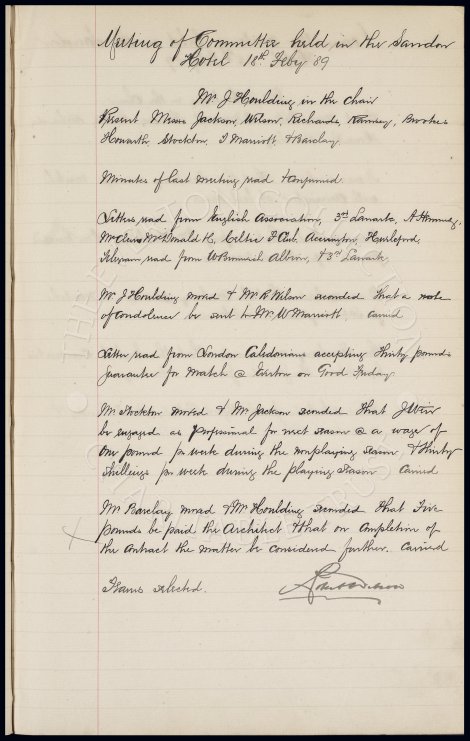 Meeting of Committee held in the Sandon
Hotel 18th Feby 89
Mr J Houlding in the chair
Present Messrs Jackson, Wilson, Richards, Ramsey, Brookes
Howarth, Stockton, T Marriott, & Barclay
Minutes of last meeting read & confirmed
Letters read from English Association, 3rd Lanark, A Hannay,
McDonald K, Celtic F Club, Accrington, Hurlford,
Telegram read from W Bromwich Albion, & 3rd Lanark
Mr J Houlding moved & Mr R Wilson seconded that a vote
of condolence be sent to Mr W Marriott. carried
Letter read from London Caledonians accepting thirty pounds
guarantee for match @ Everton on Good Friday
Mr Stockton moved & Mr Jackson seconded that J Weir
be engaged as Professional for next season @ a wage of
One pound per week during the nonplaying season, & thirty
shillings per week during the playing season carried
Mr Barclay moved & Mr Houlding seconded that Five
pounds be paid the Architect & that on completion of
the contract the matter be considered further. Carried
Teams selected.
Robt Wilson